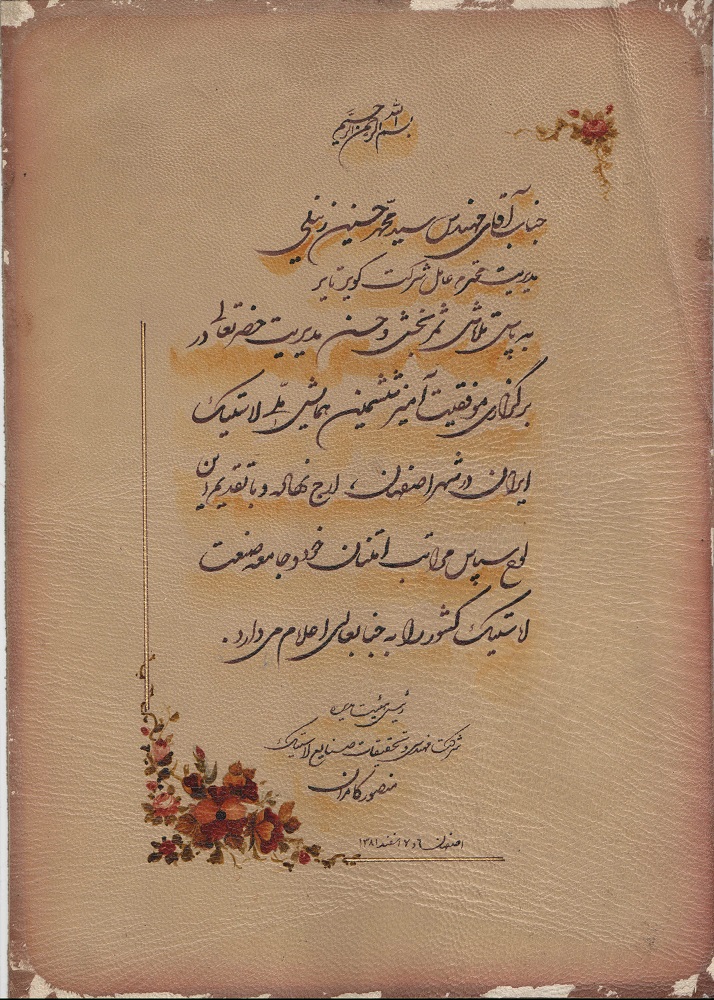 بسم الله الرحمن الرحیم
جناب آقای مهندس سید محمد حسین زینلی
مدیریت محترم عامل شرکت کویر تایر
به پاس تلاش ثمربخش و حسن مدیریت حضرتعالی در
برگزاری موفقیت آمیز ششمین همایش ملی لاستیک
ایران در شهر اصفهان، ارج نهاده و با تقدیم این
لوح سپاس مراتب امتنان خود و جامعه صنعت
لاستیک کشور را به جنابعالی اعلام می دارد.
رئیس هیئت مدیره
شرکت مهندسی و تحقیقات صنایع لاستیک
منصور کامران
اصفهان ۶ و ۷ اسفند ۱۳۸۱